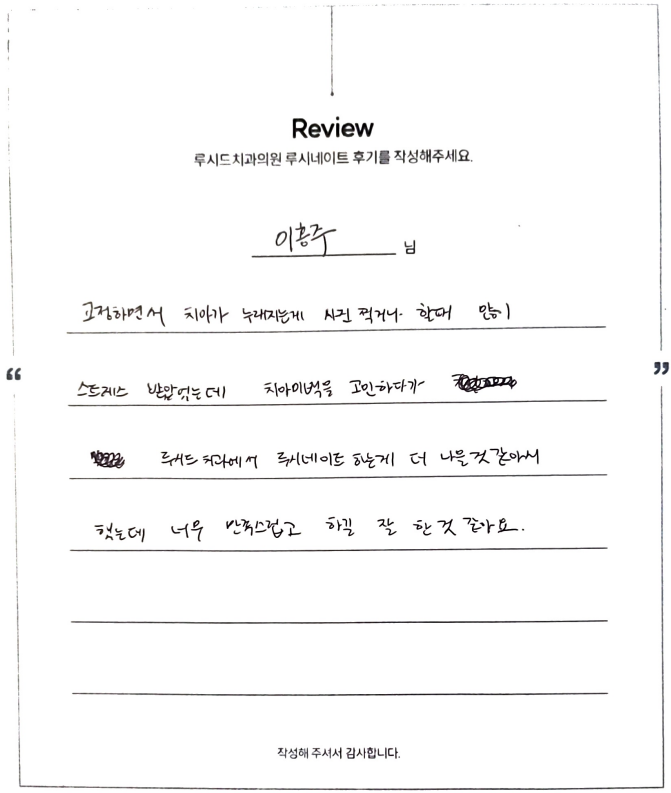 Review
루시드치과의원 루시네이트 후기를 작성해주세요.
이흥주 님
교정하면서 치아가 누래지는게 사진 찍거나 할때 많이
“ ”
스트레스 받았었는데 치아미백을 고민하다가
루시드치과에서 루시네이트 하는게 더 나을것같아서
했는데 너무 만족스럽고 하길 잘 한것 같아요.
작성해 주셔서 감사합니다.